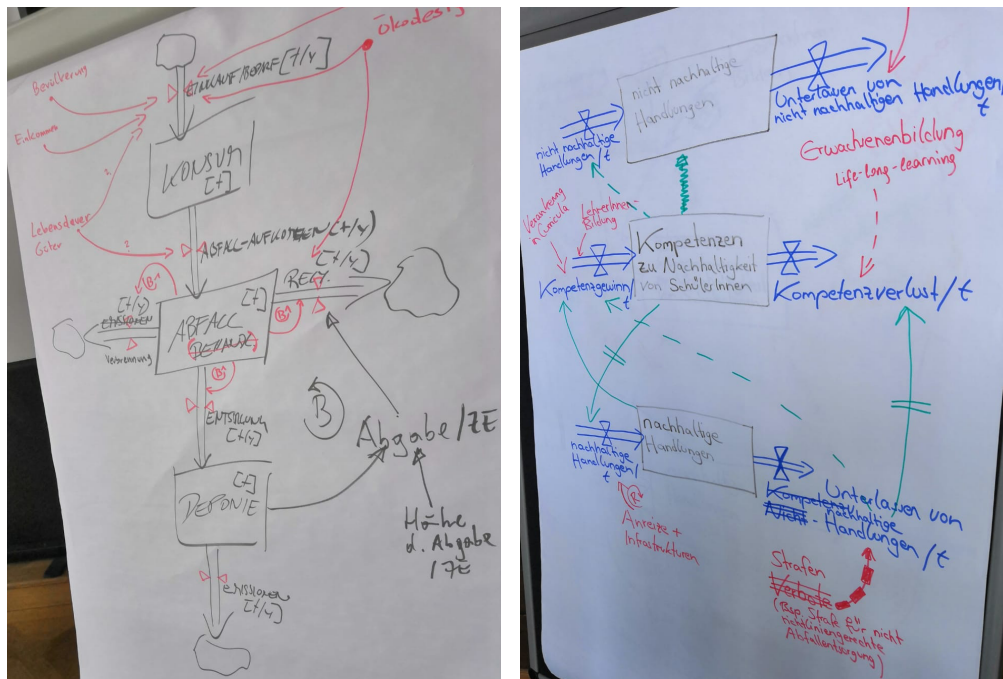 Ökodesig
EINKAUF/BEDARF [t/y]
Bevölkerung
Einkommen
KONSUM
[t]
Lebensdauer
Güter
2
2
ABFALL-AUFKOMMEN (t/y)
[t/y]
RECY.
B
[t/y]
EMISSIONEN
Verbrennung
[t]
ABFALL
BEHANDL
B
B
ENTSORGUNG
[t/y]
B
Abgabe/ZE
[t]
DEPONIE
Höhe
d. Abgabe
/ZE
EMISSIONEN
[t/y]
nicht nachhaltige
Handlungen
Unterlawen von
nicht nachhaltigen Handlungen/
t
nicht nachhaltige
Handlungen/t
Erwachsenenbildung
Life-long-learning
Verankerung
in Curricula
LehrerInnen
Bildung
Kompetenzen
zu Nachhaltigkeit
von SchülerInnen
Kompetenzgewinn/
t
Kompetenzverlust/t
nachhaltige
Handlungen
nachhaltige
Handlungen/
t
R
Anreize +
Infrastrukturen
Unterlawen von
Kompetenz nachhaltige
Nicht - Handlungen/t
Strafen
Verbote
(Bsp. Strafe für nicht
richtliniengerechte
Abfallentsorgung)